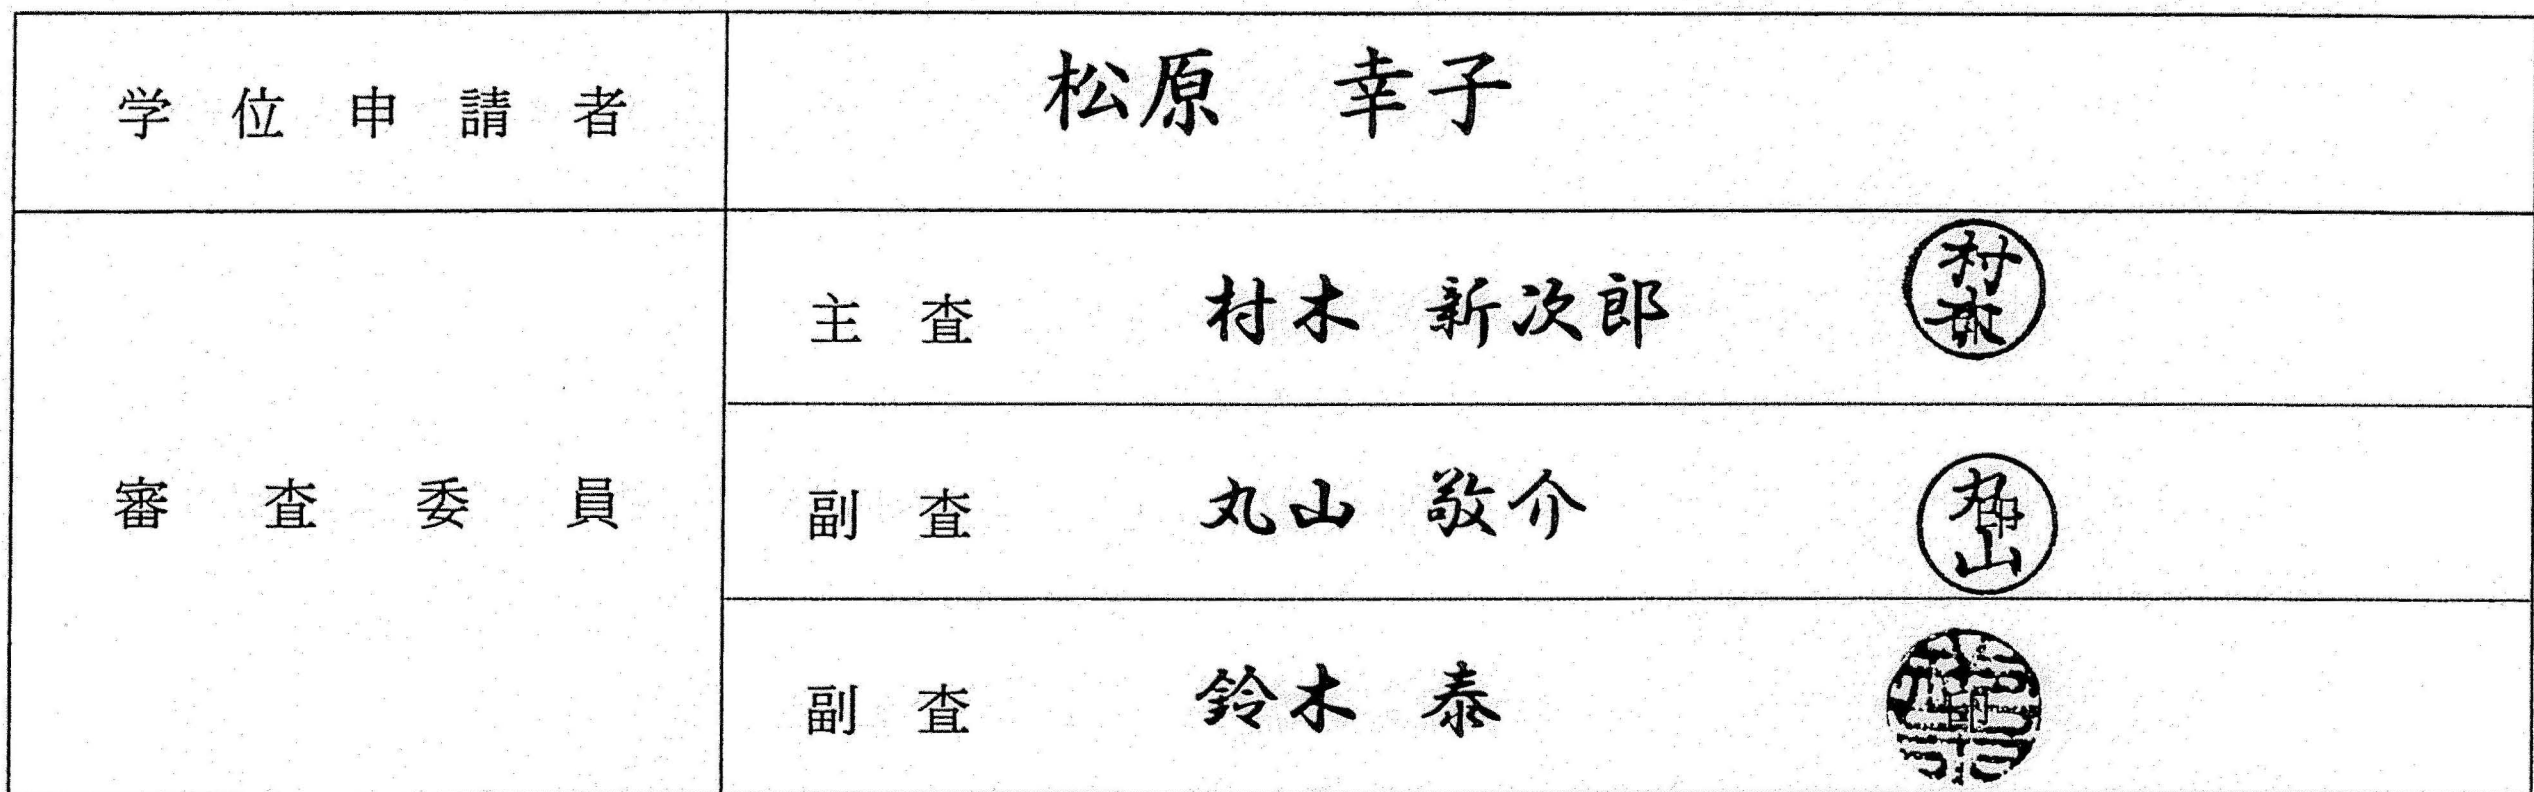 学位申請者 松原 幸子
審査委員
主査 村木 新次郎 村木 印
副査 丸山 敬介 丸山 印
副査 鈴木 泰 印